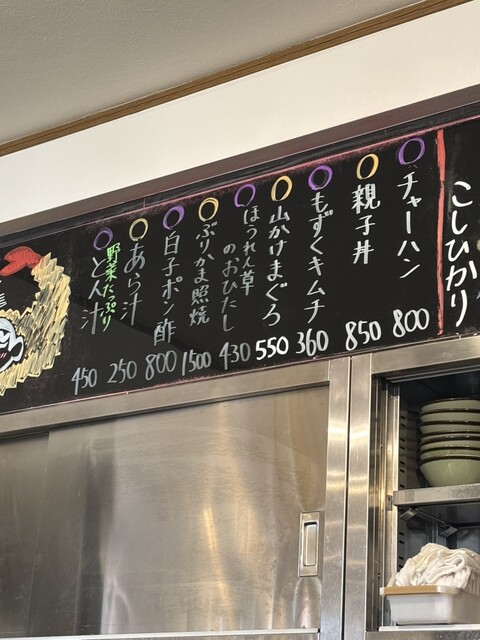 こしひかり
チャーハン 800
親子丼 850
もずくキムチ 360
山かけまぐろ 550
ほうれん草
のおひたし 430
ぶりかま照焼 1500
白子ポン酢 800
あら汁 250
野菜たっぷり
とん汁 450